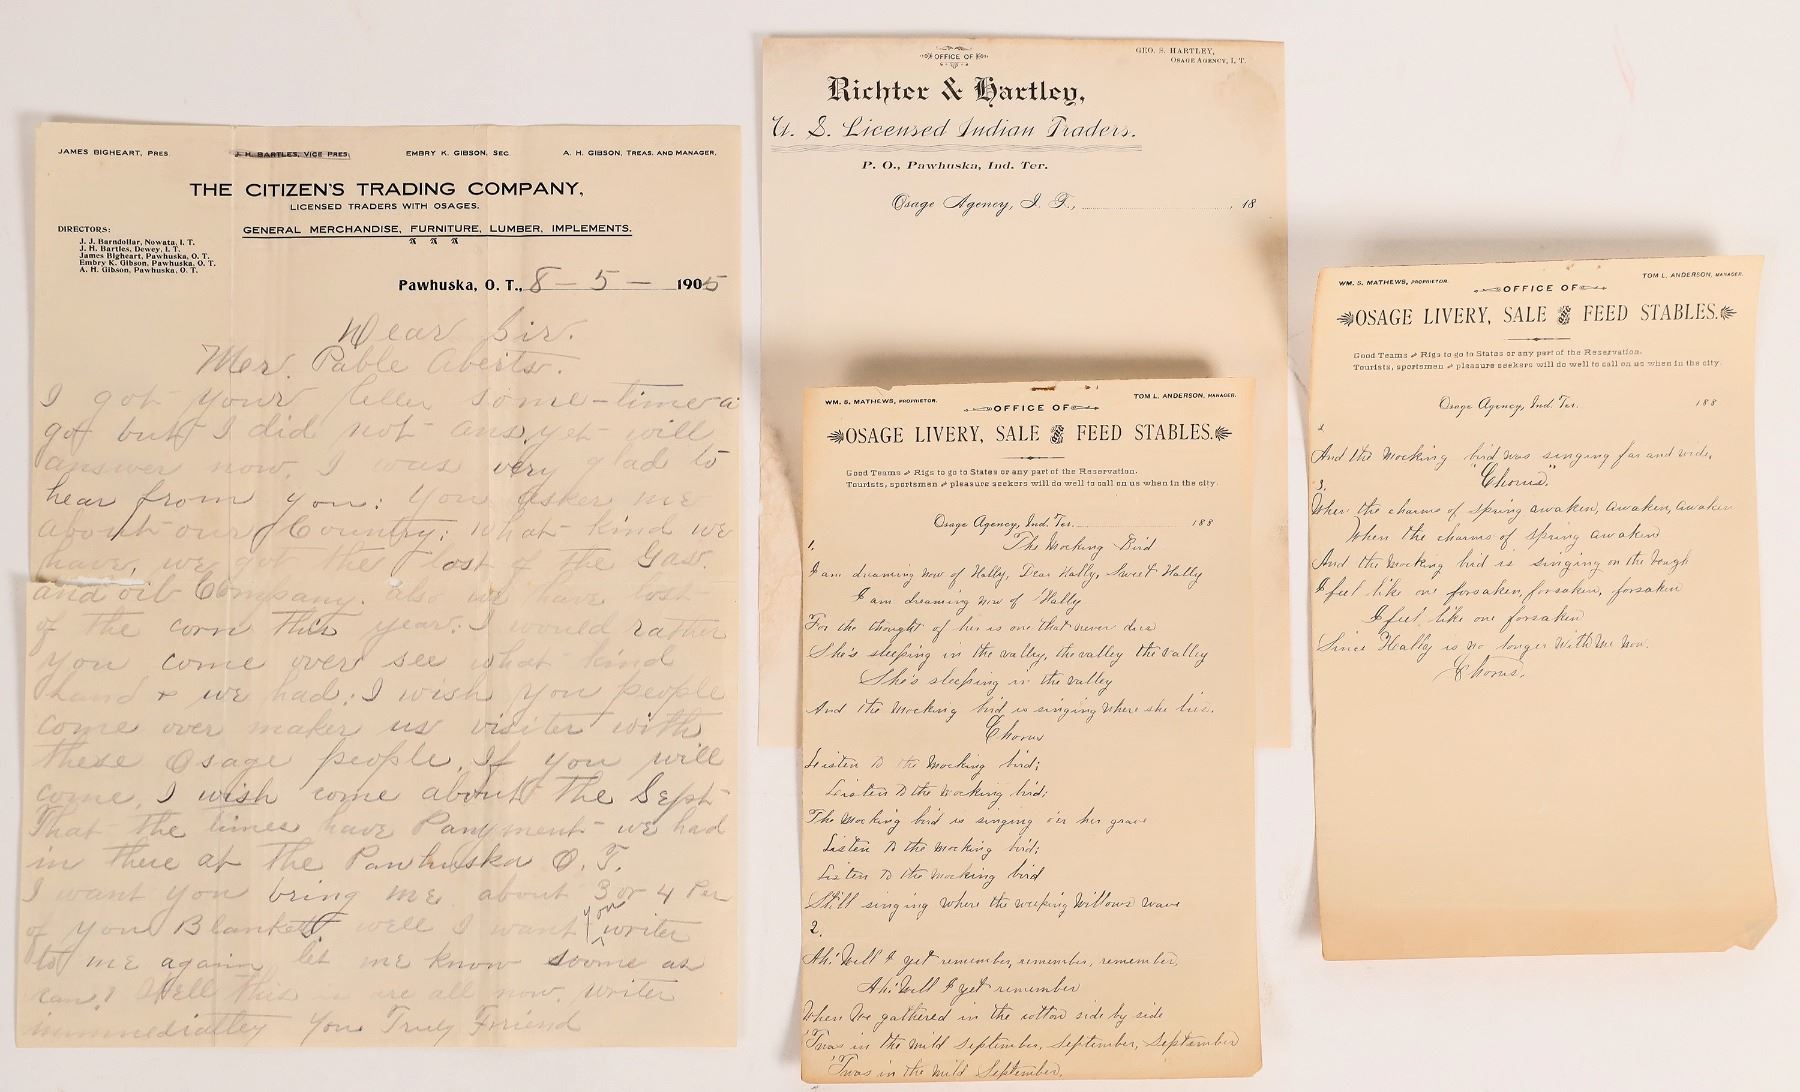 JAMES BIGHEART, PRES.
J. H. BARTLES, VICE PRES.
EMBRY K. GIBSON, SEC.
A. H. GIBSON, TREAS. AND MANAGER.
THE CITIZEN'S TRADING COMPANY,
LICENSED TRADERS WITH OSAGES.
GENERAL MERCHANDISE, FURNITURE, LUMBER, IMPLEMENTS.
DIRECTORS:
J. J. Barndollar, Nowata, I. T.
J. H. Bartles, Dewey, I. T.
James Bigheart, Pawhuska, O. T.
Embry K. Gibson, Pawhuska, O. T.
A. H. Gibson, Pawhuska, O. T.
Pawhuska, O. T., 8 - 5 - 1905
Dear Sir.
Mer. Pable Abeits.
I got your letter some-time a
got but I did not ans, yet will
answer now. I was very glad to
hear from you: You asker me
about our Country: what kind we
have, we got the lost of the Gass.
and oil Company. also we have lost
of the corn this year: I would rather
you come over see what kind
Land & we had: I wish you people
come over maker us visiter with
these Osage people. If you will
come, I wish come about the Sept
That the times have Panyment- we had
in there at the Pawhuska O. T.
I want you bring me about 3 or 4 Per
of you Blankets well I want you writer
to me again let me know soome as
can.? Well this is are all now. writer
immediatley You Truly Friend
OFFICE OF
GEO. S. HARTLEY,
OSAGE AGENCY, I. T.
Richter & Hartley,
U. S. Licensed Indian Traders.
P. O., Pawhuska, Ind. Ter.
Osage Agency, I. T., , 18
WM. S. MATHEWS, PROPRIETOR.
TOM L. ANDERSON, MANAGER.
OFFICE OF
OSAGE LIVERY, SALE & FEED STABLES.
Good Teams and Rigs to go to States or any part of the Reservation.
Tourists, sportsmen and pleasure seekers will do well to call on us when in the city.
Osage Agency, Ind. Ter. 188
The Mocking Bird
1.
I am dreaming now of Hally, Dear Hally, Sweet Hally
I am dreaming now of Hally
For the thought of her is one that never dies
She's sleeping in the valley, the valley the valley
She's sleeping in the valley
And the Mocking bird is singing where she lies.
Chorus
Listen to the Mocking bird;
Listen to the Mocking bird;
The Mocking bird is singing oer her grave
Listen to the Mocking bird;
Listen to the Mocking bird
Still singing where the weeping willows wave
2.
Ah! Well I yet remember, remember, remember,
Ah! Well I yet remember
When we gathered in the cotton side by side
'Twas in the mild September, September, September
'Twas in the mild September,
WM. S. MATHEWS, PROPRIETOR.
TOM L. ANDERSON, MANAGER.
OFFICE OF
OSAGE LIVERY, SALE & FEED STABLES.
Good Teams and Rigs to go to States or any part of the Reservation.
Tourists, sportsmen and pleasure seekers will do well to call on us when in the city.
Osage Agency, Ind. Ter. 188
And the Mocking bird was singing far and wide,
"Chorus."
3.
When the charms of spring awaken, awaken, awaken
When the charms of spring awaken
And the Mocking bird is singing on the bough
I feel like one forsaken, forsaken, forsaken
I feel like one forsaken
Since Hally is no longer with me now.
Chorus.